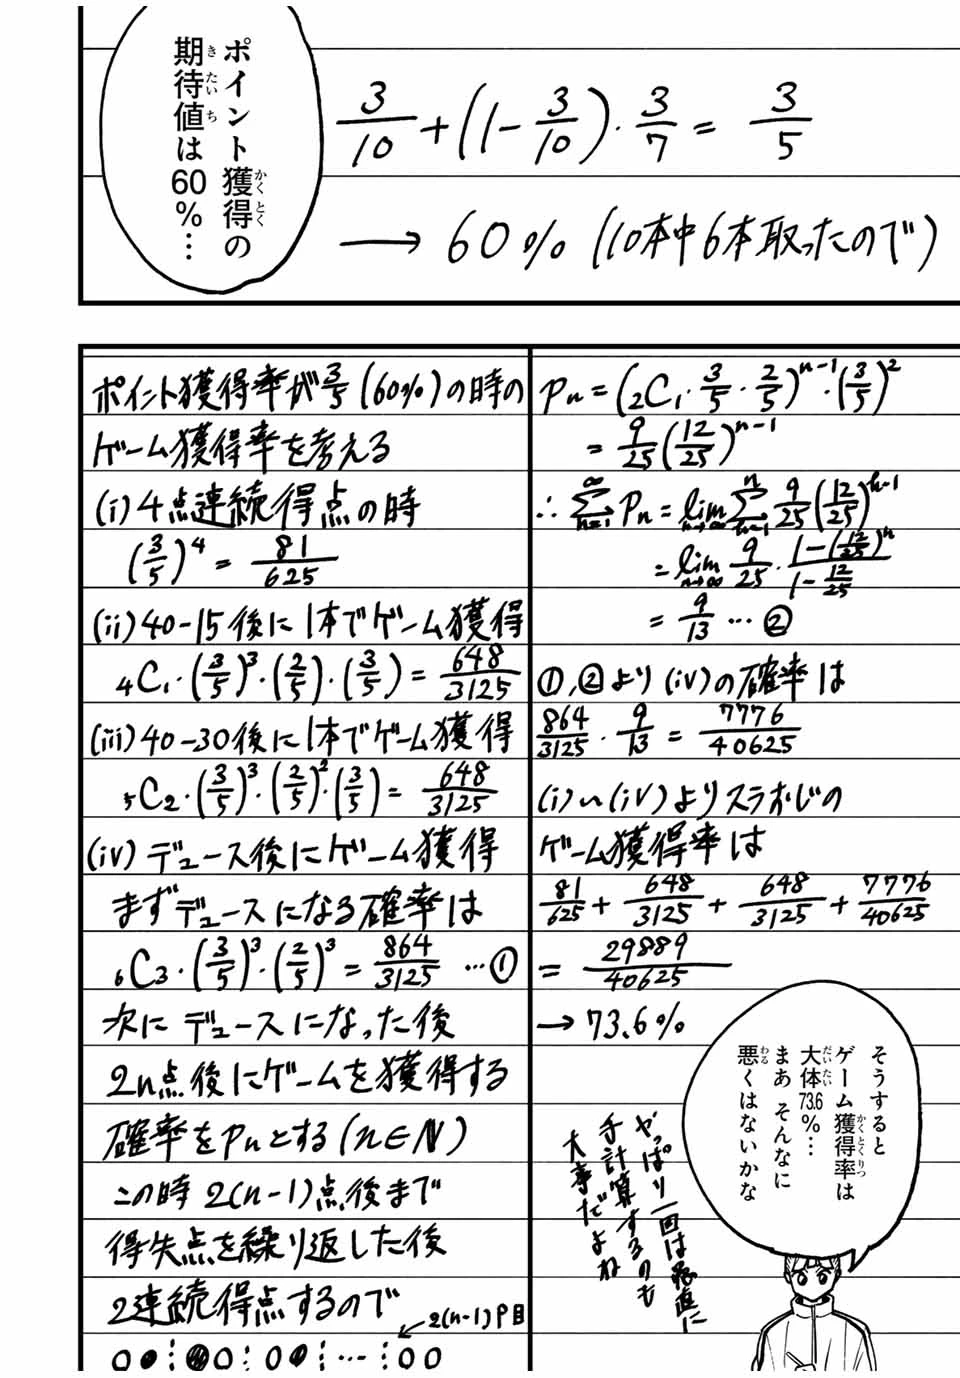 ポイント獲得の
期待値は
60%…
3/10+(1-3/10)・3/7=3/5
→60%(10本中6本取ったので)
ポイント獲得率が3/5(60%)の時の
ゲーム獲得率を考える
(i)4点連続得点の時
(3/5)^4=81/625
(ii)40-15後に1本でゲーム獲得
4C1・(3/5)^3・(2/5)・(3/5)=648/3125
(iii)40-30後に1本でゲーム獲得
5C2・(3/5)^3・(2/5)^2・(3/5)=648/3125
(iv)デュース後にゲーム獲得
まずデュースになる確率は
6C3・(3/5)^3・(2/5)^3=864/3125 …①
次にデュースになった後
2n点後にゲームを獲得する
確率をPnとする(n∈N)
この時2(n-1)点後まで
得失点を繰り返した後
2連続得点するので
2(n-1)P目
○●⋮●○⋮○●⋮…⋮○○
Pn=(2C1・3/5・2/5)^n-1・(3/5)^2
=9/25(12/25)^n-1
∴∞Σn=1 Pn=lim n→∞ nΣk=1 9/25(12/25)^k-1
=lim n→∞ 9/25・1-(12/25)^n/1-12/25
=9/13…②
①,②より(iv)の確率は
864/3125・9/13=7776/40625
(i)~(iV)よりスラおじの
ゲーム獲得率は
81/625+648/3125+648/3125+7776/40625
=29889/40625
→73.6%
そうすると
ゲーム獲得率は
大体73.6%…
まあ そんなに
悪くはないかな
やっぱり一回は愚直に
手計算するのも
大事だよね